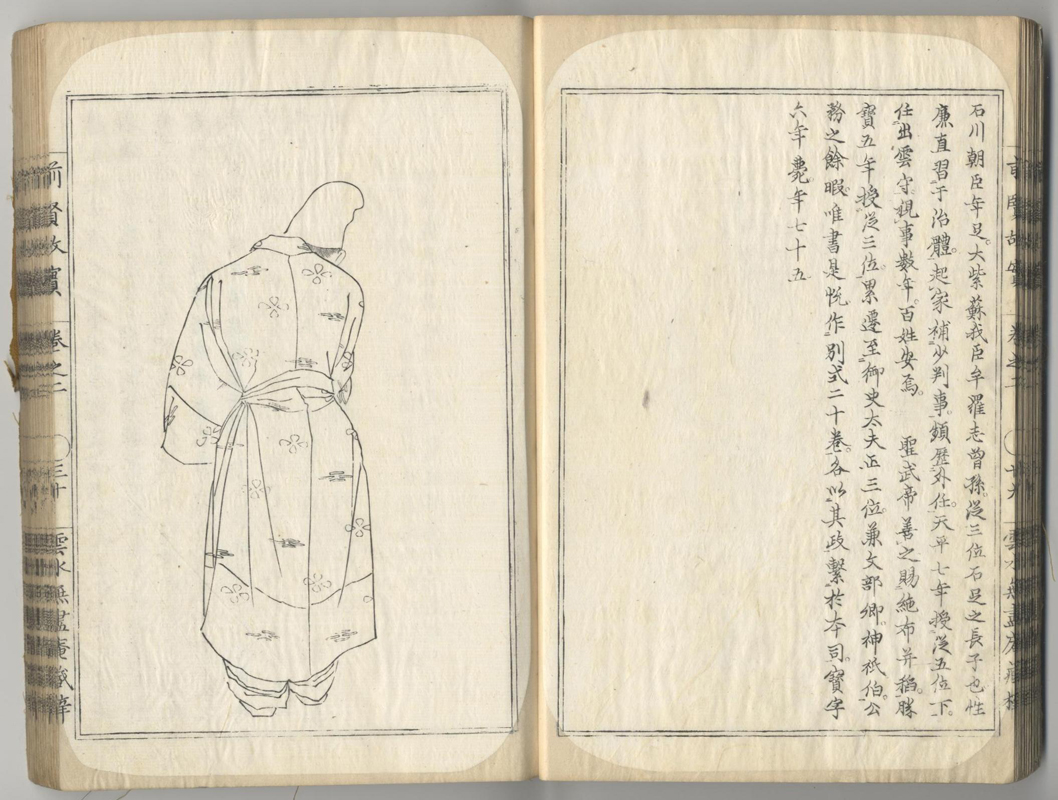 石川朝臣年足。大紫蘇我臣牟羅志曾孫。從三位石足之長子也性
廉直習于治體。起家補少判事。頻歷外任。天平七年授從五位下。
任出雲守。視事數年。百姓安焉。 聖武帝善之賜絁布并稻。勝
寶五年授從三位。累遷至御史大夫正三位兼文部卿。神祇伯。公
務之餘暇唯書是悅作別式二十卷。各以其政繫於本司。寶字
六年薨。年七十五
前賢故實 卷之二 三十 雲水無盡庵藏梓